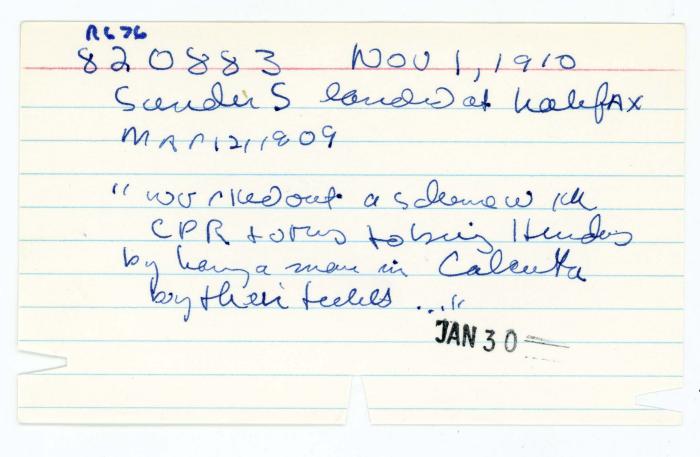 RG 76
820883 NOV 1, 1910
Sunder S landed at HalifAX
MAr 12, 1909
"worked out a scheme with
CPR to bring Hindus
by having a man in Calcutta
buy their tickets ..."
JAN 30